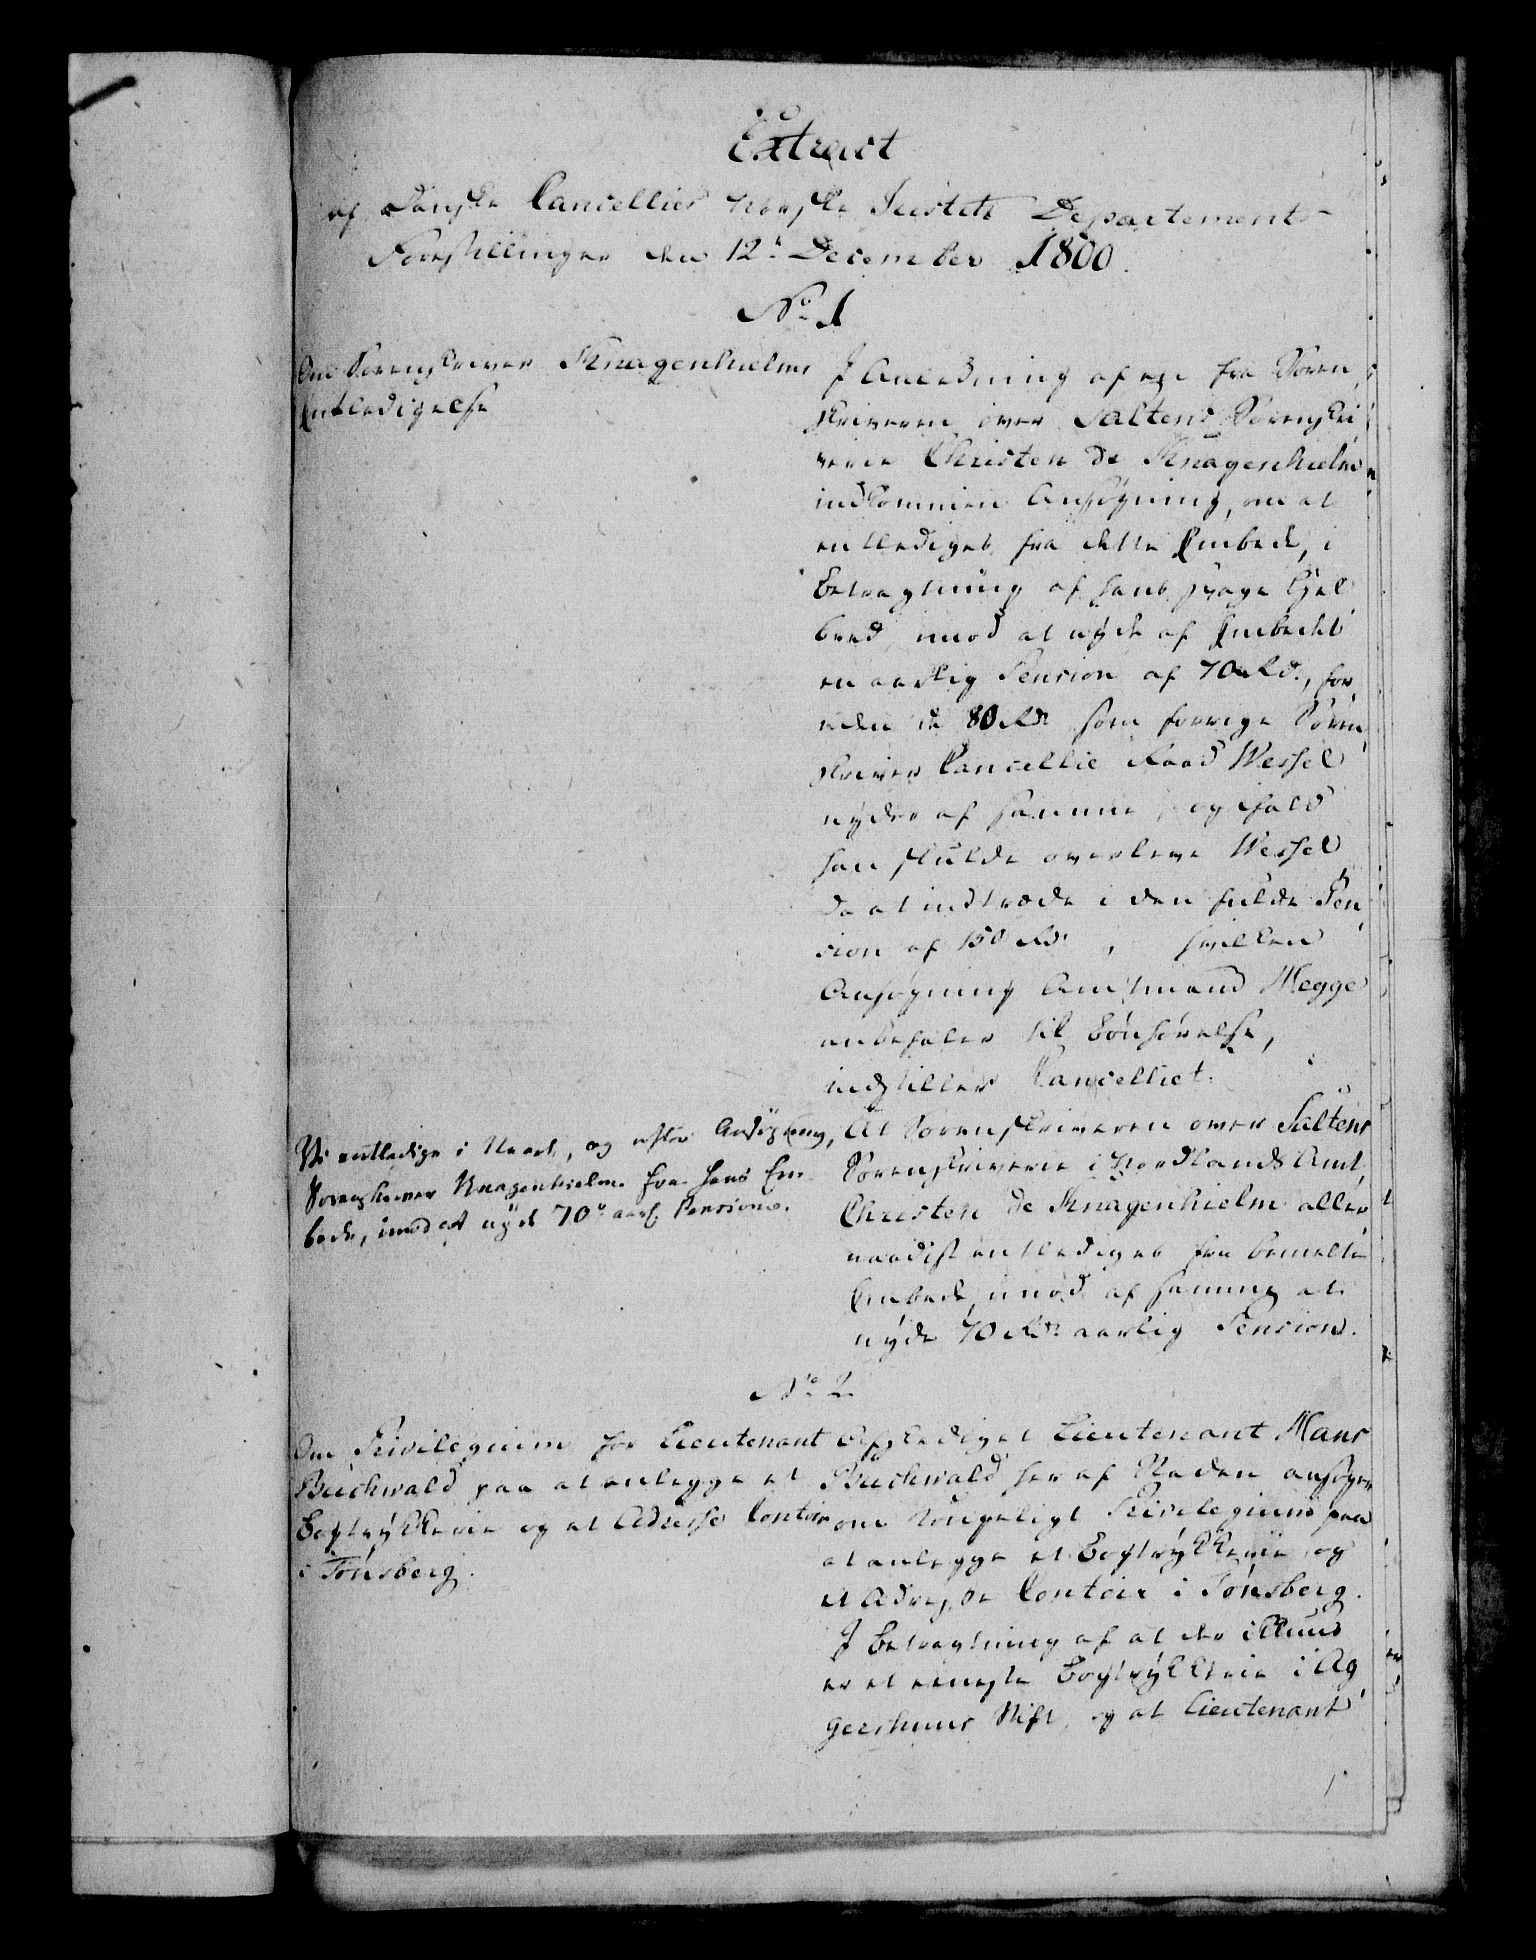 Extract
af Danske Cancellies Norske Justits Departements
Forestillinger den 12te December 1800.
No. 1
Om Sorenskriver Knagenhielms
Entledigelse
I Anledning af en fra Soren
skriveren over Saltens Sorenskri
verie Christen de Knagenhielm
indkommen Ansøgning, om at
entlediges fra dette Embede, i
Betragtning af hans svage Hel
bred mod at nyde af Embedet
en aarlig Pension af 70 Rd., for
uden de 80 Rd. som forrige Soren
skriver Cancellie Raad Wessel
nyder af samme, og ifald
han skulde overleve Wessel
da at indtræde i den fulde Pen
sion af 150 Rd., hvilken
Ansøgning Amtmand Hegge
anbefaler til Bønhørelse,
indstiller Cancelliet:
At Sorenskriveren over Saltens
Sorenskriverie i Nordlands Amt
Christen de Knagenhielm aller
naadigst entlediges fra bemeldte
Embede, imod af samme at
nyde 70 Rd. aarlig Pension.
Vi entledige i Naade, og efter Ansøgning,
Sorenskriver Knagenhielm fra hans Em
bede, imod at nyde 70 rd aarl. Pension.
No. 2.
Om Privilegium for Lieutenant
Buchwald paa at anlegge et
Bogtrykkerie og et Adresse Contoir
i Tønsberg.
Afskediget Lieutenant Hans
Buchwald her af Staden ansøger
om Kongeligt Privilegium paa
at anlegge et Bogtrykkerie og
et Adresse Contoir i Tønsberg.
I Betragtning af at der ikkuns
er et eeneste Bogtrykkerie i Ag
gershuus Stift, og at Lieutenant